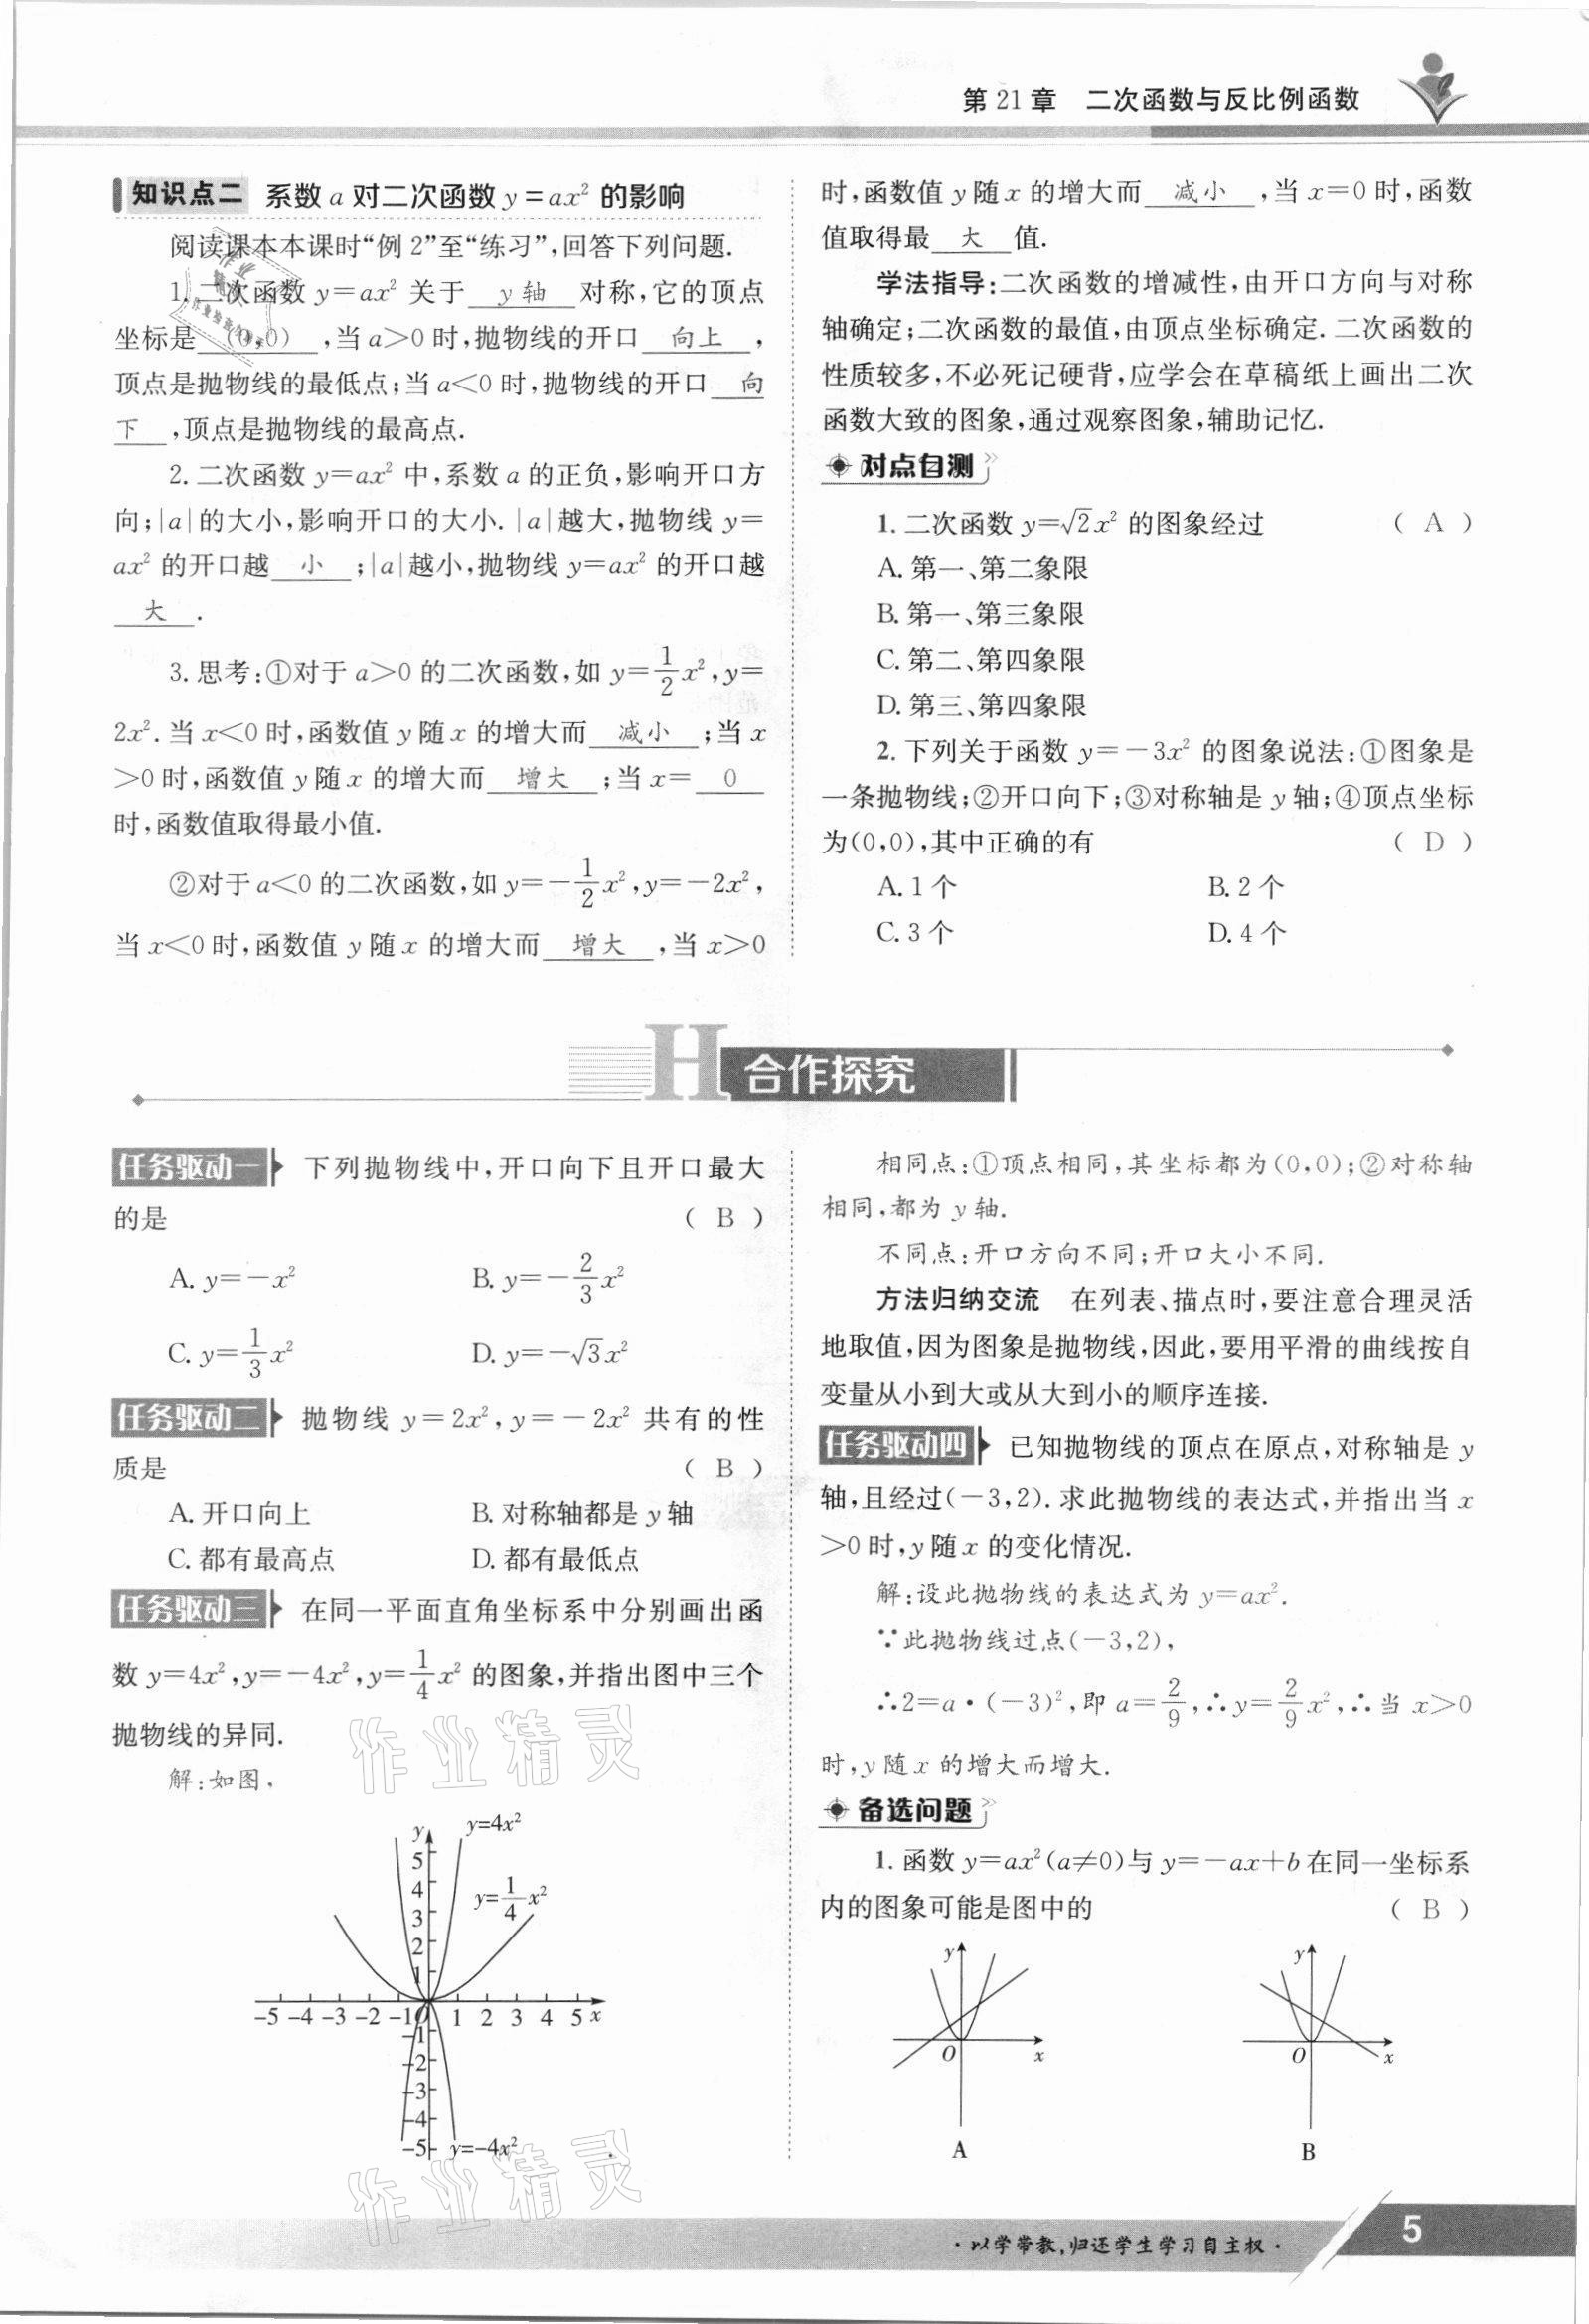 第21章 二次函数与反比例函数
知识点二 系数a对二次函数y=ax²的影响
阅读课本本课时“例2”至“练习”,回答下列问题.
1.二次函数y=ax²关于 y轴 对称,它的顶点
坐标是 (0,0) ,当a>0时,抛物线的开口 向上 ,
顶点是抛物线的最低点;当a<0时,抛物线的开口 向
下 ,顶点是抛物线的最高点.
2.二次函数y=ax²中,系数a的正负,影响开口方
向;|a|的大小,影响开口的大小.|a|越大,抛物线y=
ax²的开口越 小 ;|a|越小,抛物线y=ax²的开口越
大 .
3.思考:①对于a>0的二次函数,如y=1/2x²,y=
2x².当x<0时,函数值y随x的增大而 减小 ;当x
>0时,函数值y随x的增大而 增大 ;当x= 0
时,函数值取得最小值.
②对于a<0的二次函数,如y=-1/2x²,y=-2x²,
当x<0时,函数值y随x的增大而 增大 ,当x>0
时,函数值y随x的增大而 减小 ,当x=0时,函数
值取得最 大 值.
学法指导:二次函数的增减性,由开口方向与对称
轴确定;二次函数的最值,由顶点坐标确定.二次函数的
性质较多,不必死记硬背,应学会在草稿纸上画出二次
函数大致的图象,通过观察图象,辅助记忆.
对点自测
1.二次函数y=√2x²的图象经过 ( A )
A.第一、第二象限
B.第一、第三象限
C.第二、第四象限
D.第三、第四象限
2.下列关于函数y=-3x²的图象说法:①图象是
一条抛物线;②开口向下;③对称轴是y轴;④顶点坐标
为(0,0),其中正确的有 ( D )
A.1个 B.2个
C.3个 D.4个
H 合作探究
任务驱动一 下列抛物线中,开口向下且开口最大
的是 ( B )
A.y=-x² B.y=-2/3x²
C.y=1/3x² D.y=-√3x²
任务驱动二 抛物线y=2x²,y=-2x²共有的性
质是 ( B )
A.开口向上 B.对称轴都是y轴
C.都有最高点 D.都有最低点
任务驱动三 在同一平面直角坐标系中分别画出函
数y=4x²,y=-4x²,y=1/4x²的图象,并指出图中三个
抛物线的异同.
解:如图.
y y=4x²
5
4 y=1/4x²
3
2
1
-5 -4 -3 -2 -1O 1 2 3 4 5 x
-1
-2
-3
-4
-5 y=-4x²
相同点:①顶点相同,其坐标都为(0,0);②对称轴
相同,都为y轴.
不同点:开口方向不同;开口大小不同.
方法归纳交流 在列表、描点时,要注意合理灵活
地取值,因为图象是抛物线,因此,要用平滑的曲线按自
变量从小到大或从大到小的顺序连接.
任务驱动四 已知抛物线的顶点在原点,对称轴是y
轴,且经过(-3,2).求此抛物线的表达式,并指出当x
>0时,y随x的变化情况.
解:设此抛物线的表达式为y=ax².
∵此抛物线过点(-3,2),
∴2=a·(-3)²,即a=2/9,∴y=2/9x²,∴当x>0
时,y随x的增大而增大.
备选问题
1.函数y=ax²(a≠0)与y=-ax+b在同一坐标系
内的图象可能是图中的 ( B )
y y
O x O x
A B
作业精灵
作业精灵
·以学带教,归还学生学习自主权·
5